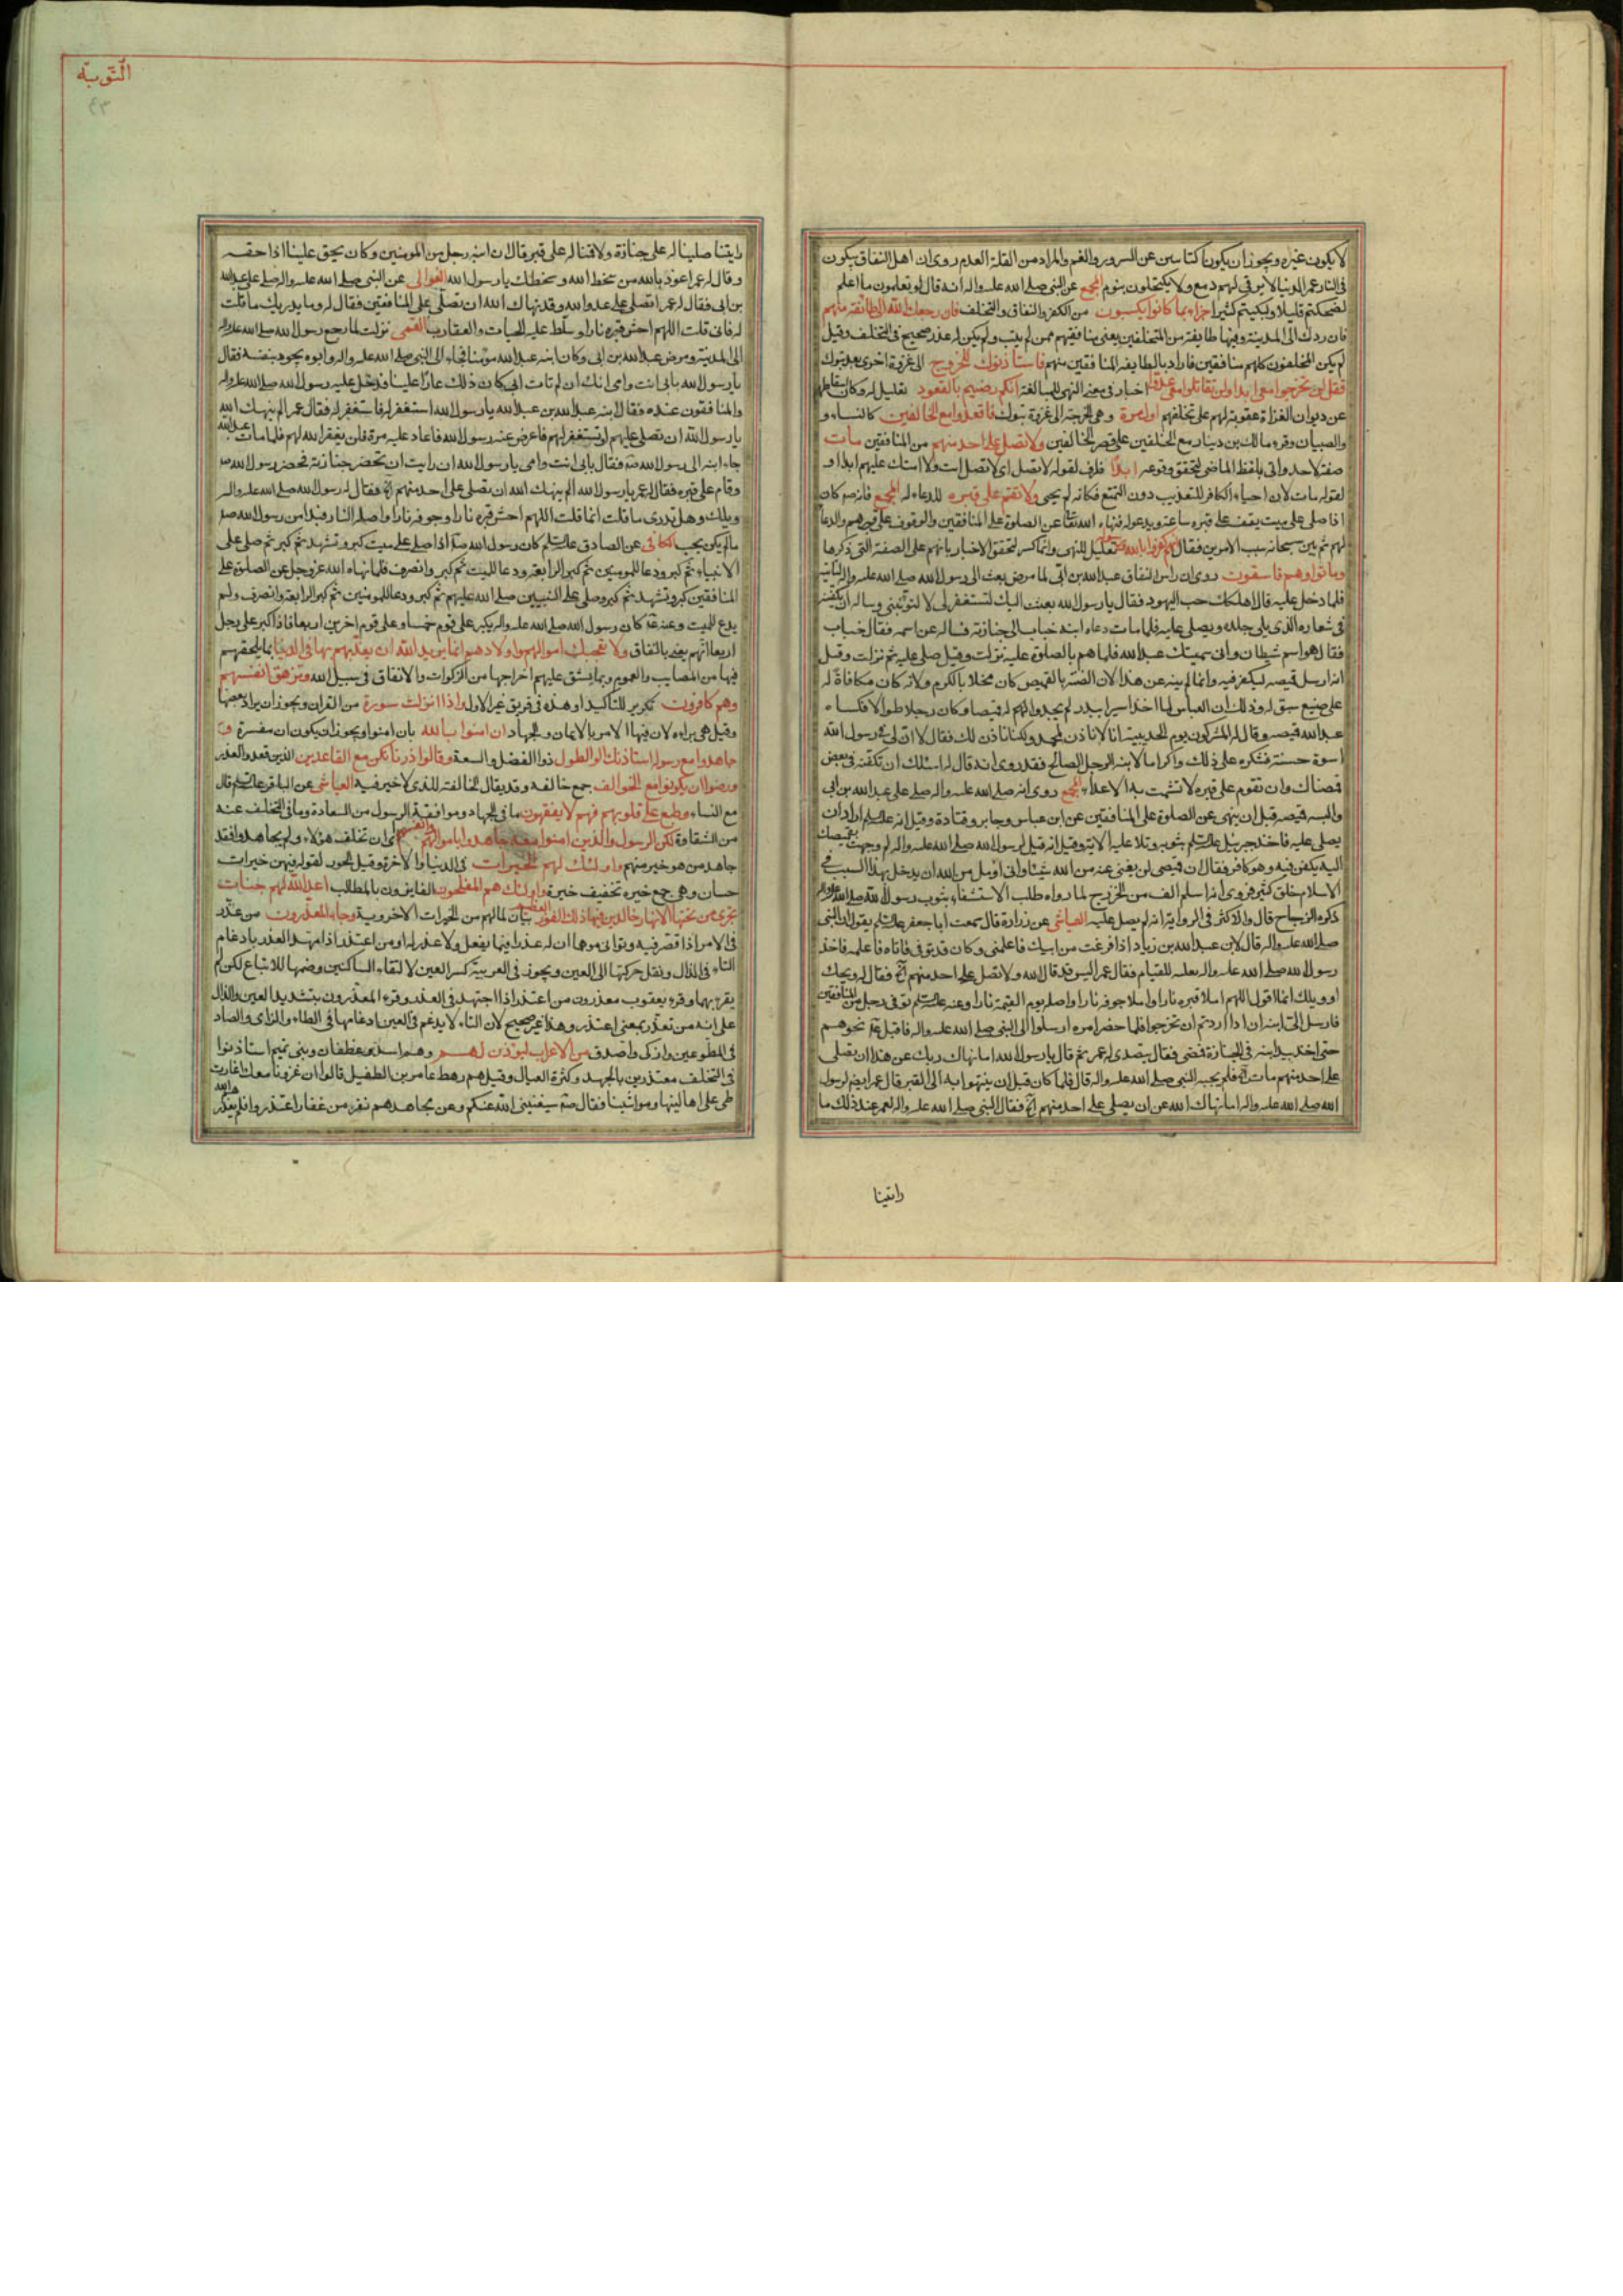 لا يكون غيره ويجوز ان يكونا كنايتين عن السرور والغم والمراد من القلة العدم روى ان اهل النفاق يبكون
في النار عمر الدنيا لا يرقى لهم دمع ولا يكتحلون بنوم المجمع عن النبي صلى الله عليه واله انه قال لو تعلمون ما اعلم
لضحكتم قليلا ولبكيتم كثيرا جزاء بما كانوا يكسبون من الكفر والنفاق والتخلف فان رجعك الله الى طائفة منهم
فان ردك الى المدينة وفيها طايفة من المتخلفين يعني منافقيهم ممن لم يتب ولم يكن له عذر صحيح في التخلف وقيل
لم يكن المخلفون كلهم منافقين فاراد بالطايفة المنافقين منهم فاستأذنوك للخروج الى غزوة اخرى بعد تبوك
فقل لن تخرجوا معي ابدا ولن تقاتلوا معي عدوا اخبار في معنى النهي للمبالغة انكم رضيتم بالقعود تعليل له وكان اسقاطهم
عن ديوان الغزاة عقوبة لهم على تخلفهم اول مرة وهي الخرجة الى غزوة تبوك فاقعدوا مع الخالفين كالنساء و
والصبيان وقرء مالك بن دينار مع الخلفين على قصر الخالفين ولا تصل على احد منهم من المنافقين مات
صفة لاحد واتى بلفظ الماضي لتحقق وقوعه ابدا ظرف لقوله لا تصل اي لا تصل انت ولا امتك عليهم ابدا و
لقوله مات لان احياء الكافر للتعذيب دون التمتع فكانه لم يحيى ولا تقم على قبره للدعاء له المجمع فانه صم كان
اذا صلى على ميت يقف على قبره ساعة ويدعو له فنهاه الله تعالى عن الصلوة على المنافقين والوقوف على قبرهم والدعا
لهم ثم بين سبحانه سبب الامرين فقال انهم كفروا بالله ورسوله تعليل للنهي وانما كسر لتحقق الاخبار بانهم على الصفة التي ذكرها
وماتوا وهم فاسقون روى ان راس النفاق عبد الله بن ابي لما مرض بعث الى رسول الله صلى الله عليه واله ليأتيه
فلما دخل عليه قال اهلكك حب اليهود فقال يا رسول الله بعثت اليك لتستغفر لي لا لتؤنبني وساله ان يكفنه
في شعاره الذي يلي جلده ويصلي عليه فلما مات دعاه ابنه حباب الى جنازته فساله عن اسمه فقال حباب
فقال هو اسم شيطان واني سميتك عبد الله فلما هم بالصلوة عليه نزلت وقيل صلى عليه ثم نزلت وقيل
انه ارسل قميصه ليكفن فيه وانما لم ينه عن هذا لان الضنة بالقميص كان مخلا بالكرم ولانه كان مكافاة له
على صنيع سبق له وذلك ان العباس لما اخذ اسيرا ببدر لم يجدوا لهم له قميصا وكان رجلا طوالا فكساه
عبد الله قميصه وقال له المشركون يوم الحديبية انا لا ناذن لمحمد ولكنا ناذن لك فقال لا ان لي في رسول الله
اسوة حسنة فشكره على ذلك واكراما لابنه الرجل الصالح فقد روى انه قال له اسئلك ان تكفنه في بعض
قمصانك وان تقوم على قبره لا تشمت به الاعداء المجمع روى انه صلى الله عليه واله صلى على عبد الله بن ابي
والبسه قميصه قبل ان ينهى عن الصلوة على المنافقين عن ابن عباس وجابر وقتادة وقيل انه عليه السلم اراد ان
يصلي عليه فاخذ جبرئيل عليه السلم بثوبه وتلا عليه الاية وقيل انه قيل لرسول الله صلى الله عليه واله لم وجهت بقميصك
اليه يكفن فيه وهو كافر فقال ان قميصي لن يغني عنه من الله شيئا واني اؤمل من الله ان يدخل بهذا السبب في
الاسلام خلق كثير فروى انه اسلم الف من الخزرج لما راوه طلب الاستشفاء بثوب رسول الله صلى الله عليه واله
ذكره الزجاج قال والاكثر في الرواية انه لم يصل عليه العياشي عن زرارة قال سمعت ابا جعفر عليه السلم يقول ان النبي
صلى الله عليه واله قال لابن عبد الله بن زياد اذا فرغت من ابيك فاعلمني وكان قد توفي فاتاه فاعلمه فاخذ
رسول الله صلى الله عليه واله نعليه للقيام فقال عمر اليس قد قال الله ولا تصل على احد منهم اخ فقال له ويحك
او ويلك انما اقول اللهم املا قبره نارا واملا جوفه نارا واصله يوم القيمة نارا وعنه عليه السلم توفي رجل من المنافقين
فارسل الى ابنه ان اذا اردتم ان تخرجوا فلما حضر امره ارسلوا الى النبي صلى الله عليه واله فاقبل عم نحوهم
حتى اخذ بيد ابنه في الجنازة فمضى فقال يتصدى له عمر ثم قال يا رسول الله اما نهاك ربك عن هذا ان تصلي
على احد منهم مات ابدا فلم يجبه النبي صلى الله عليه واله قال فلما كان قبل ان ينتهوا به الى القبر قال عمر ايضا لرسول
الله صلى الله عليه واله اما نهاك الله عن ان يصلي على احد منهم اخ فقال النبي صلى الله عليه واله لعمر عند ذلك ما
راتينا
التوبة
٤٣
رايتنا صلينا له على جنازة ولا قمنا له على قبر قال ان ابنه رجل من المومنين وكان يحق علينا اداء حقه
وقال له عمر اعوذ بالله من سخط الله وسخطك يا رسول الله الغوالي عن النبي صلى الله عليه واله صلى على عبد الله
بن ابي فقال له عمر اتصلي على عدو الله وقد نهاك الله ان تصلي على المنافقين فقال له وما يدريك ما قلت
له فاني قلت اللهم احش قبره نارا وسلط عليه الحيات والعقارب القمي نزلت لما رجع رسول الله صلى الله عليه واله
الى المدينة ومرض عبد الله بن ابي وكان ابنه عبد الله مؤمنا فجاء الى النبي صلى الله عليه واله وابوه يجود بنفسه فقال
يا رسول الله بابي انت وامي انك ان لم تات ابي كان ذلك عارا علينا فدخل عليه رسول الله صلى الله عليه واله
والمنافقون عنده فقال ابنه عبد الله بن عبد الله يا رسول الله استغفر له فاستغفر له فقال عمر الم ينهك الله
يا رسول الله ان تصلي عليهم او تستغفر لهم فاعرض عنه رسول الله فاعاد عليه مرة فان يغفر الله لهم فلما مات عبد الله
جاء ابنه الى رسول الله صم فقال بابي انت وامي يا رسول الله ان رايت ان تحضر جنازته فحضر رسول الله صم
وقام على قبره فقال له عمر يا رسول الله الم ينهك الله ان تصلي على احد منهم اخ فقال له رسول الله صلى الله عليه واله
ويلك وهل تدري ما قلت انما قلت اللهم احش قبره نارا وجوفه نارا واصله النار فبدا من رسول الله صم
ما لم يكن يحب الكافي عن الصادق عليه السلم كان رسول الله صم اذا صلى على ميت كبر وتشهد ثم كبر ثم صلى على
الانبياء ثم كبر ودعا للمومنين ثم كبر الرابعة ودعا للميت ثم كبر وانصرف فلما نهاه الله عز وجل عن الصلوة على
المنافقين كبر وتشهد ثم كبر وصلى على النبيين صلى الله عليهم ثم كبر ودعا للمومنين ثم كبر الرابعة وانصرف ولم
يدع للميت وعنه عم كان رسول الله صلى الله عليه واله يكبر على قوم خمسا وعلى قوم اخرين اربعا فاذا كبر على رجل
اربعا اتهم يعني بالنفاق ولا تعجبك اموالهم واولادهم انما يريد الله ان يعذبهم بها في الدنيا بما يلحقهم
فيها من المصايب والغموم وبما يشق عليهم اخراجها من الزكوات والانفاق في سبيل الله وتزهق انفسهم
وهم كافرون تكرير للتاكيد او هذه في فريق غير الاول واذا انزلت سورة من القران ويجوز ان يراد بعضها
وقيل هي براءة لان فيها الامر بالايمان والجهاد ان امنوا بالله بان امنوا ويجوز ان يكون ان مفسرة و
جاهدوا مع رسوله استاذنك اولوا الطول ذوا الفضل والسعة وقالوا ذرنا نكن مع القاعدين الذين قعدوا لعذر
ورضوا ان يكونوا مع الخوالف جمع خالفه وقد يقال الخالفة للذي لا خير فيه العياشي عن الباقر عليه السلم قال
مع النساء وطبع على قلوبهم فهم لا يفقهون ما في الجهاد وموافقة الرسول من السعادة وما في التخلف عنه
من الشقاوة لكن الرسول والذين امنوا معه جاهدوا باموالهم وانفسهم اي ان تخلف هؤلاء ولم يجاهدوا فقد
جاهد من هو خير منهم واولئك لهم الخيرات في الدنيا والاخرة وقيل الحور لقوله فيهن خيرات
حسان وهي جمع خيره تخفيف خيرة واولئك هم المفلحون الفايزون بالمطالب اعد الله لهم جنات
تجري من تحتها الانهار خالدين فيها ذلك الفوز العظيم بيان لمالهم من الخيرات الاخروية وجاء المعذرون من عذر
في الامر اذا قصر فيه وتوانى موهما ان له عذرا فيما يفعل ولا عذر له او من اعتذر اذا مهد العذر بادغام
التاء في الذال ونقل حركتها الى العين ويجوز في العربية كسر العين لالتقاء الساكنين وضمها للاتباع لكن لم
يقرء بهما وقرء يعقوب معذرون من اعذر اذا اجتهد في العذر وقرء المعذرون بتشديد العين والذال
على انه من تعذر بمعنى اعتذر وهذا غير صحيح لان التاء لا يدغم في العين ادغامها في الطاء والزاي والصاد
في المطوعين وازكى واصدق من الاعراب ليؤذن لهم وهم اسد وغطفان وبني تميم استاذنوا
في التخلف معتذرين بالجهد وكثرة العيال وقيل هم رهط عامر بن الطفيل قالوا ان غزونا معك اغارت
طي على اهالينا ومواشينا فقال صم سيغنيني الله عنكم وعن مجاهد هم نفر من غفار اعتذروا فلم يعذر